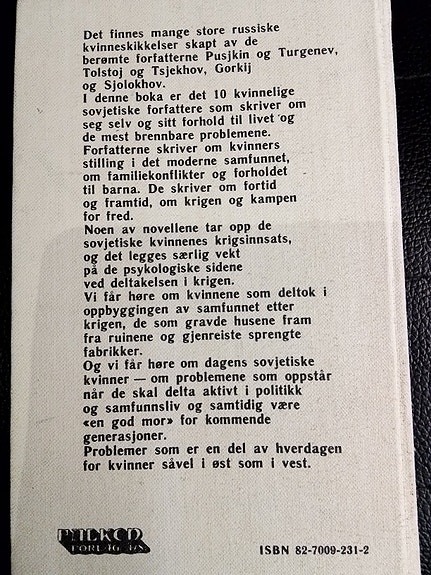 Det finnes mange store russiske
kvinneskikkelser skapt av de
berømte forfatterne Pusjkin og Turgenev,
Tolstoj og Tsjekhov, Gorkij
og Sjolokhov.
I denne boka er det 10 kvinnelige
sovjetiske forfattere som skriver om
seg selv og sitt forhold til livet og
de mest brennbare problemene.
Forfatterne skriver om kvinners
stilling i det moderne samfunnet,
om familiekonflikter og forholdet
til barna. De skriver om fortid
og framtid, om krigen og kampen
for fred.
Noen av novellene tar opp de
sovjetiske kvinnenes krigsinnsats,
og det legges særlig vekt
på de psykologiske sidene
ved deltakelsen i krigen.
Vi får høre om kvinnene som deltok i
oppbyggingen av samfunnet etter
krigen, de som gravde husene fram
fra ruinene og gjenreiste sprengte
fabrikker.
Og vi får høre om dagens sovjetiske
kvinner — om problemene som oppstår
når de skal delta aktivt i politikk
og samfunnsliv og samtidig være
«en god mor» for kommende
generasjoner.
Problemer som er en del av hverdagen
for kvinner såvel i øst som i vest.
FALKEN
FORLAG A/S
ISBN 82-7009-231-2